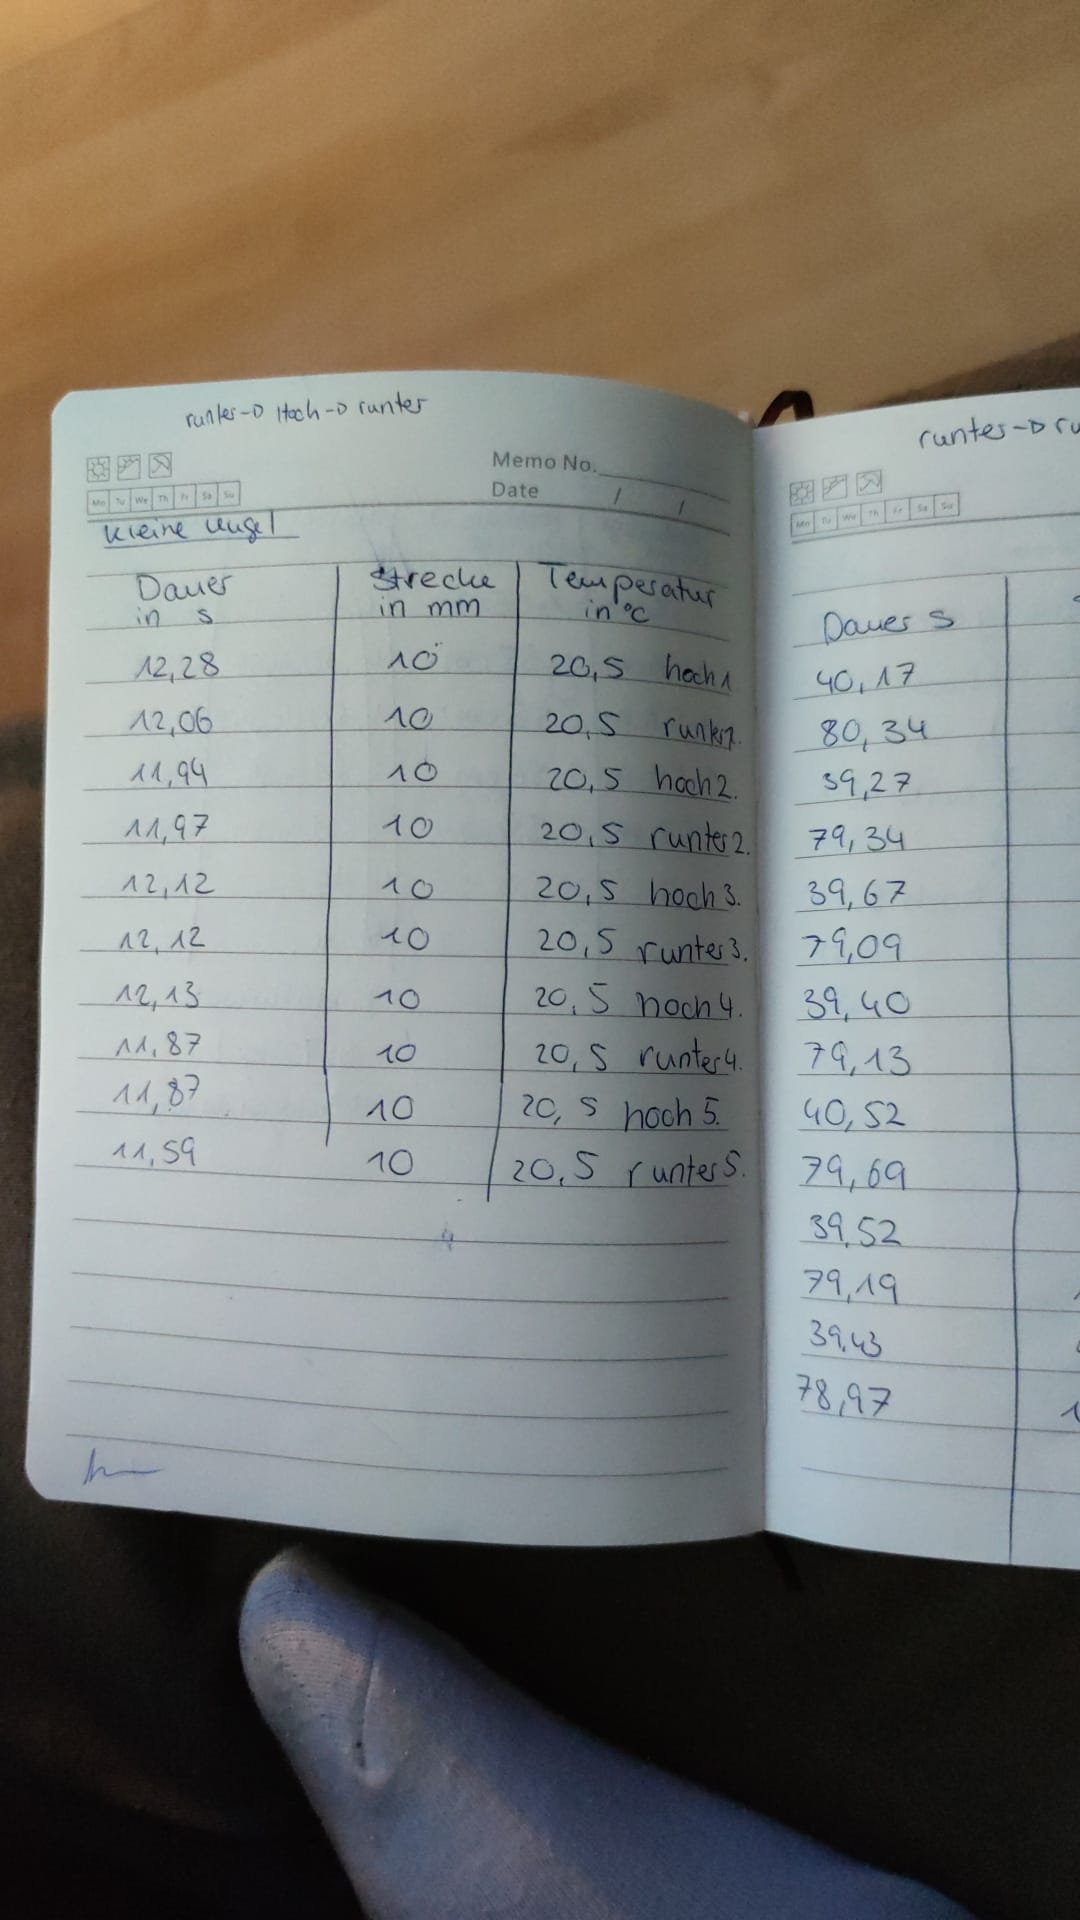 runter→ Hoch→ runter
Memo No.
Date / /
Mo Tu We Th Fr Sa Su
Kleine Kugel
Dauer in s Strecke in mm Temperatur in °C
12,28 10 20,5 hoch 1
12,06 10 20,5 runter 1.
11,94 10 20,5 hoch 2.
11,97 10 20,5 runter 2.
12,12 10 20,5 hoch 3.
12,12 10 20,5 runter 3.
12,13 10 20,5 hoch 4.
11,87 10 20,5 runter 4.
11,87 10 20,5 hoch 5.
11,59 10 20,5 runter 5.
runter→ ru
Mo Tu We Th Fr Sa Su
Dauer s
40,17
80,34
39,27
79,34
39,67
79,09
39,40
79,13
40,52
79,69
39,52
79,19
39,43
78,97